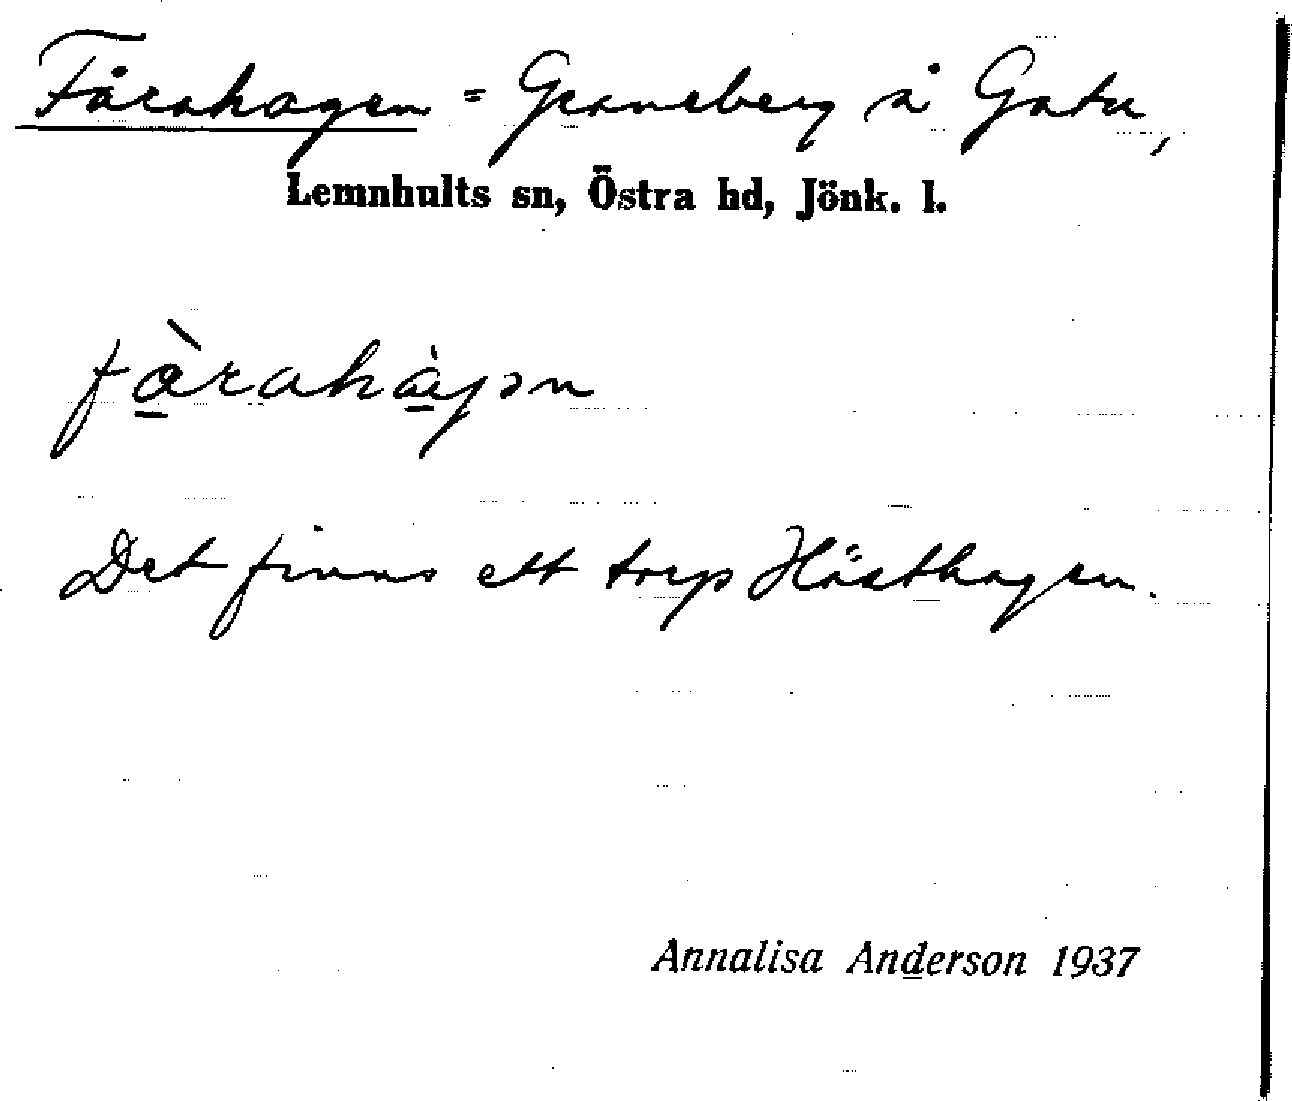 Fårahagen = Graneberg å Gata,
Lemnhults sn, Östra hd, Jönk. l.
fàrahàgən
Det finns ett torp Hästhagen.
Annalisa Anderson 1937